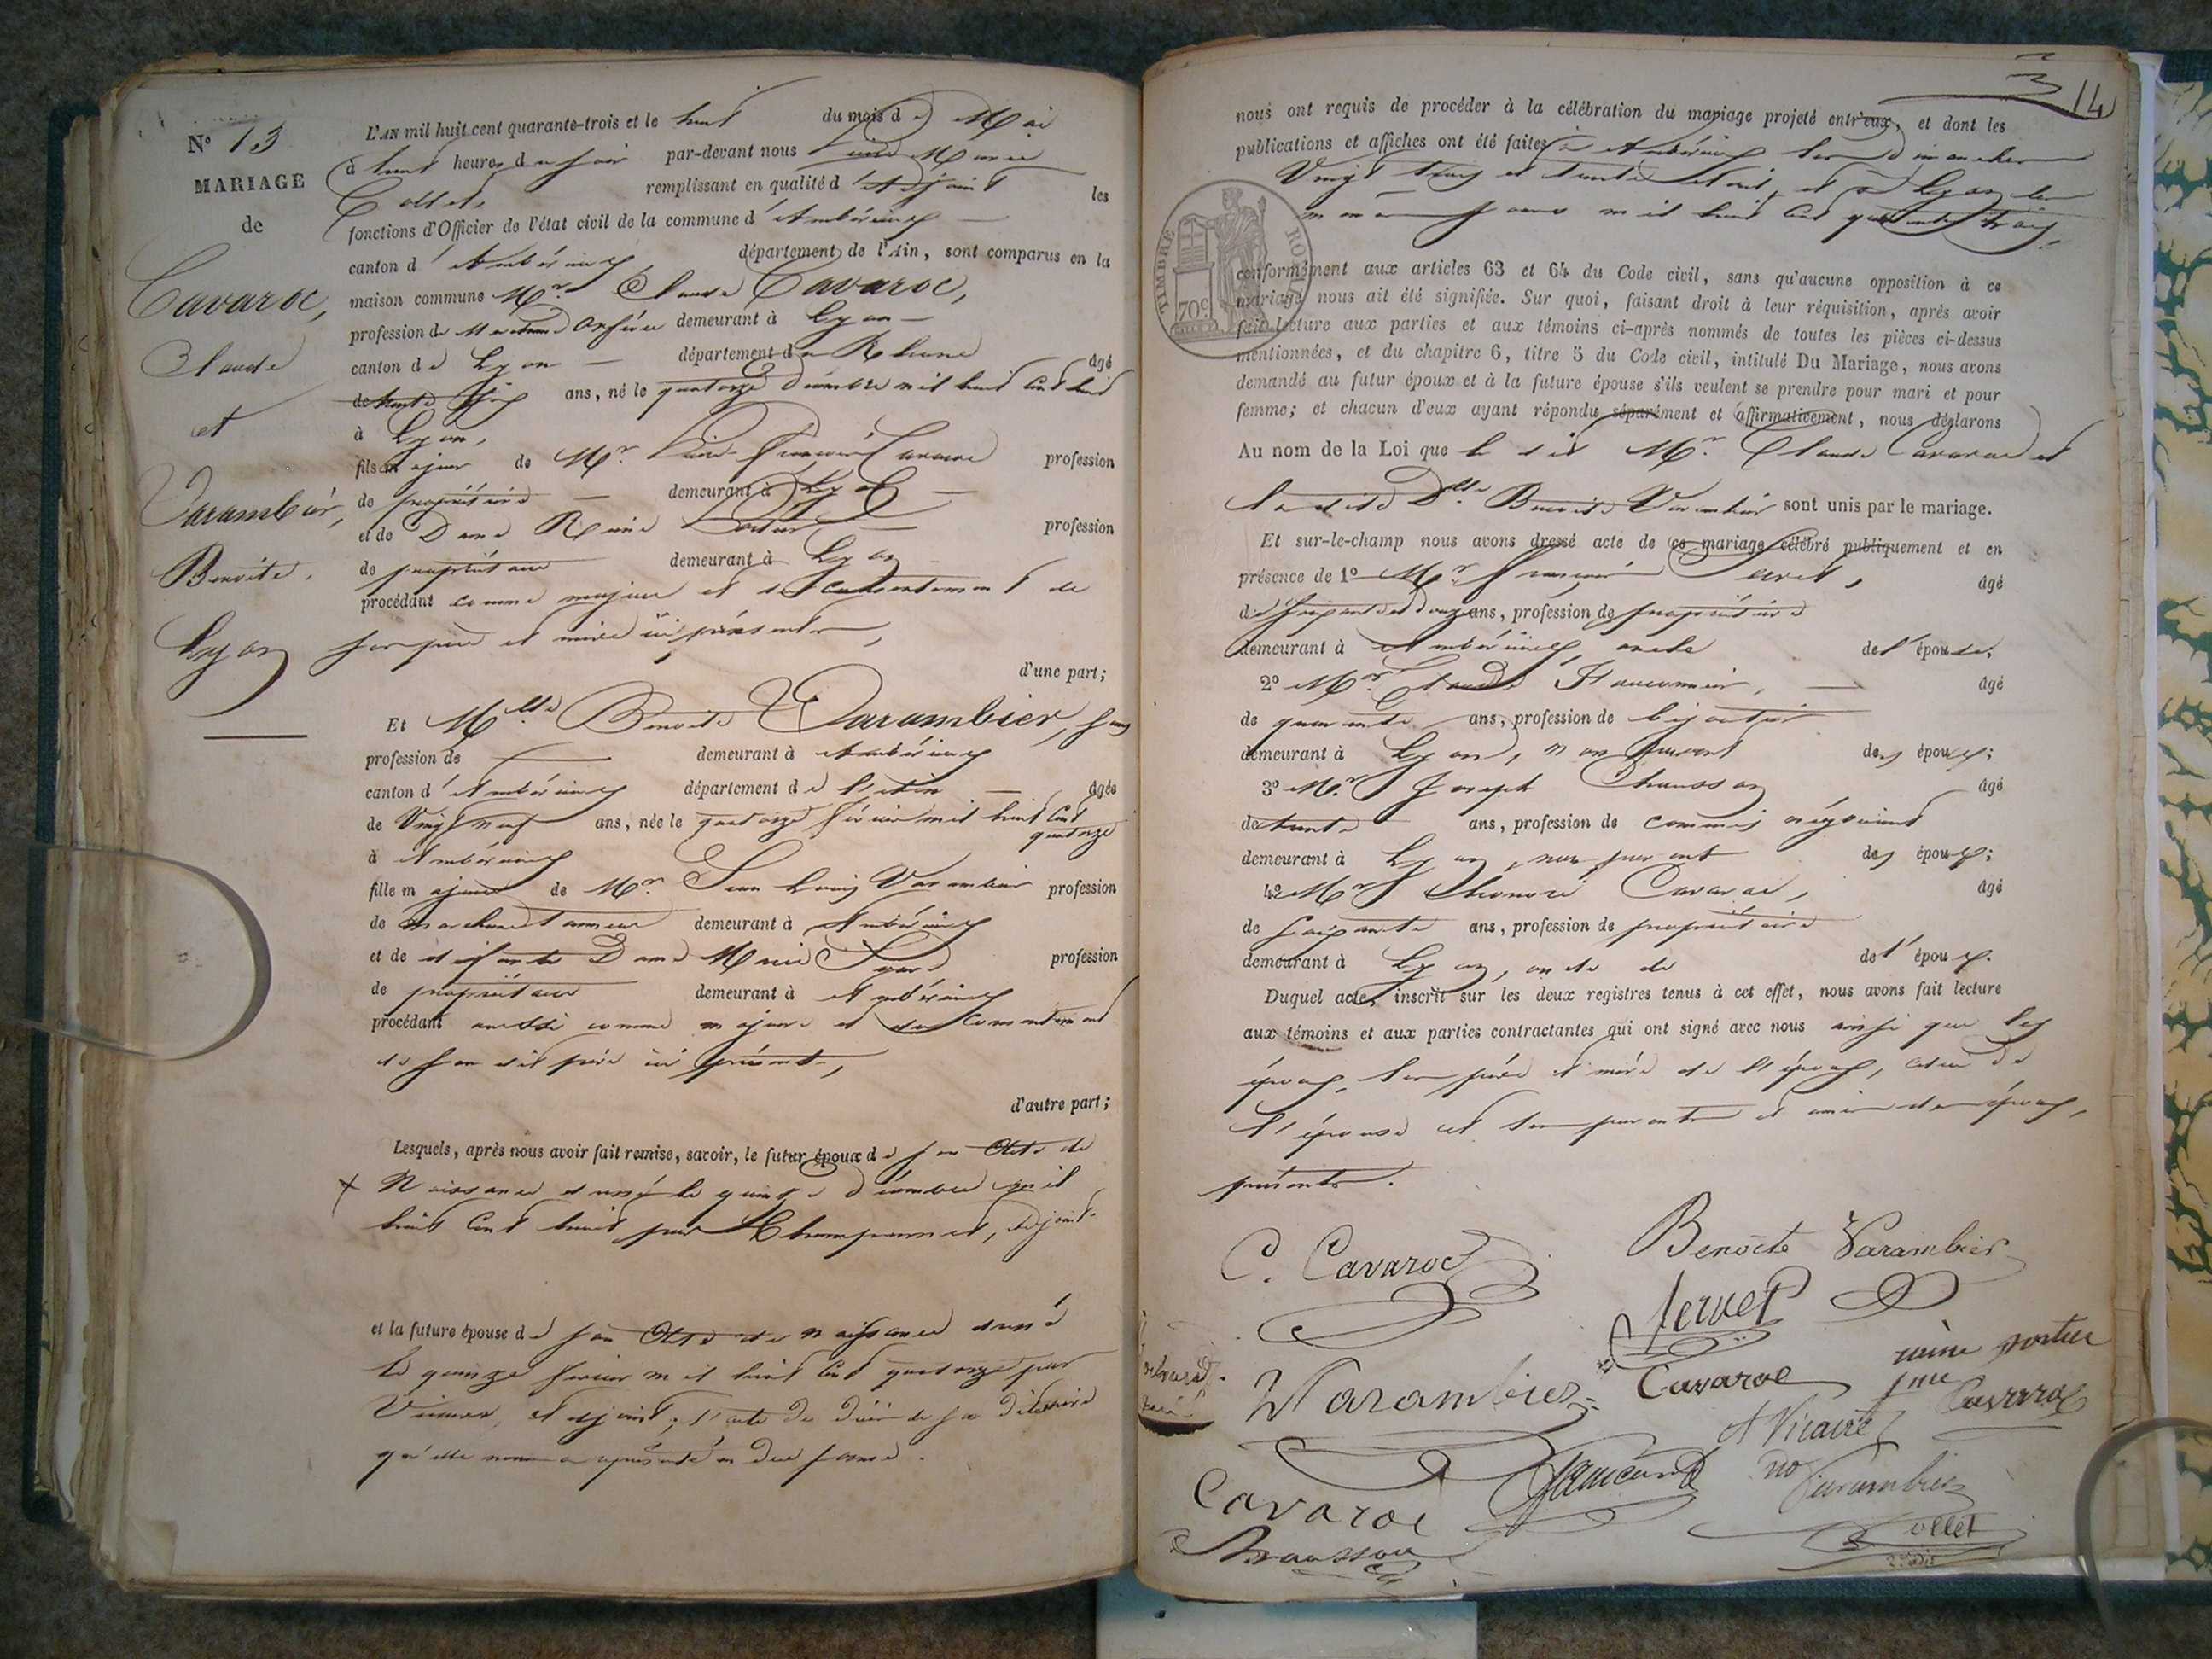 N° 13
MARIAGE
de
Cavaroc,
Claude
et
Varambier,
Benoite.
Lyon
L'AN mil huit cent quarante-trois et le huit du mois de Mai
à huit heures du soir par-devant nous Marie
Collet, remplissant en qualité d'Adjoint les
fonctions d'Officier de l'état civil de la commune d'Ambérieux
canton d'Ambérieux département de l'Ain, sont comparus en la
maison commune Mr. Claude Cavaroc,
profession de Marchand Orfèvre demeurant à Lyon
canton de Lyon département du Rhône âgé
de trente ans, né le quatorze décembre mil huit cent huit
à Lyon,
fils majeur de Mr. François Cavaroc profession
de propriétaire demeurant à Lyon
et de Dame Reine Portier profession
de propriétaire demeurant à Lyon
procédant comme majeur et du consentement de
ses père et mère ici présents,
d'une part;
Et Mlle Benoite Varambier, sans
profession de demeurant à Ambérieux
canton d'Ambérieux département de l'Ain âgée
de Vingt neuf ans, née le quatorze février mil huit cent
quatorze
à Ambérieux
fille majeure de Mr. Jean Louis Varambier profession
de marchand tanneur demeurant à Ambérieux
et de défunte Dame Marie profession
de propriétaire demeurant à Ambérieux
procédant aussi comme majeure et du consentement
de son dit père ici présent,
d'autre part;
Lesquels, après nous avoir fait remise, savoir, le futur époux de son Acte de
Naissance dressé le quinze décembre mil
huit cent huit par Champanet, adjoint.
et la future épouse de son Acte de naissance dressé
le quinze février mil huit cent quatorze par
adjoint; l'acte de décès de sa dite mère
qu'elle nous a représenté en due forme.
14
nous ont requis de procéder à la célébration du mariage projeté entr'eux, et dont les
publications et affiches ont été faites à Ambérieux les dimanches
Vingt trois et trente avril, et à Lyon les
mêmes jours mil huit cent quarante trois,
TIMBRE ROYAL
70c
conformément aux articles 63 et 64 du Code civil, sans qu'aucune opposition à ce
mariage nous ait été signifiée. Sur quoi, faisant droit à leur réquisition, après avoir
fait lecture aux parties et aux témoins ci-après nommés de toutes les pièces ci-dessus
mentionnées, et du chapitre 6, titre 5 du Code civil, intitulé Du Mariage, nous avons
demandé au futur époux et à la future épouse s'ils veulent se prendre pour mari et pour
femme; et chacun d'eux ayant répondu séparément et affirmativement, nous déclarons
Au nom de la Loi que le dit Mr. Claude Cavaroc et
la dite Dlle. Benoite Varambier sont unis par le mariage.
Et sur-le-champ nous avons dressé acte de ce mariage célébré publiquement et en
présence de 1° Mr. François Servet, âgé
de soixante et douze ans, profession de propriétaire
demeurant à Ambérieux, oncle de l'épouse,
2° Mr. Claude âgé
de quarante ans, profession de bijoutier
demeurant à Lyon, non parent des époux;
3° Mr. Joseph Chausson âgé
de trente ans, profession de commis négociant
demeurant à Lyon, non parent des époux;
4° Mr Cavaroc, âgé
de soixante ans, profession de propriétaire
demeurant à Lyon, oncle de de l'époux.
Duquel acte, inscrit sur les deux registres tenus à cet effet, nous avons fait lecture
aux témoins et aux parties contractantes qui ont signé avec nous ainsi que les
époux, les père et mère de l'époux, celui de
l'épouse et les parents et amis des époux,
présents.
C. Cavaroc
Benoite Varambier
Servet
Varambier
Cavaroc
reine portier
fme Cavaroc
A Vicaire
Cavaroc
Varambier
Chausson
Collet